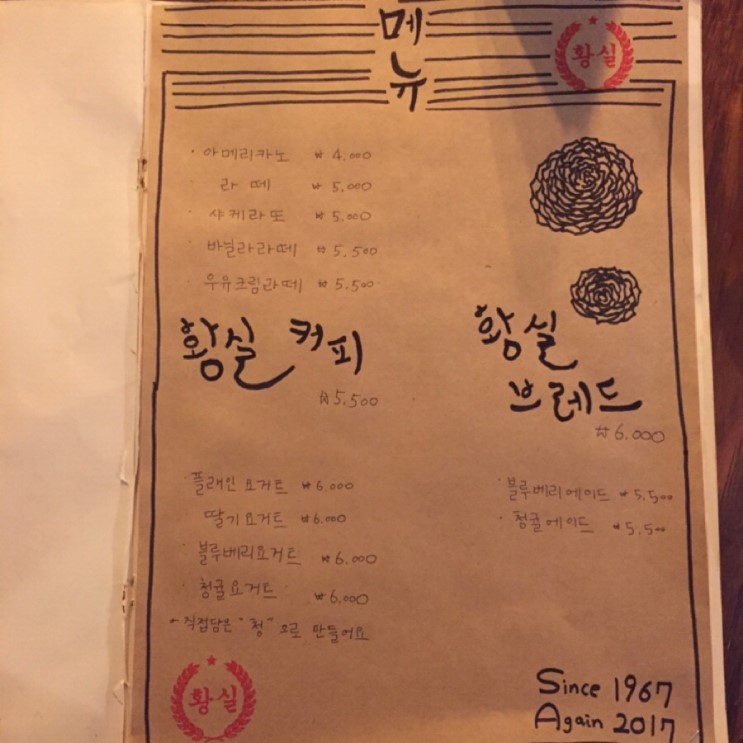 메뉴
황실
· 아메리카노 ₩ 4.000
라떼 ₩ 5.000
샤케라또 ₩ 5.000
· 바닐라라떼 ₩ 5.500
우유크림라떼 ₩ 5.500
황실 커피
₩ 5.500
황실
브레드
₩ 6.000
· 플래인요거트 ₩ 6.000
딸기요거트 ₩ 6.000
· 블루베리요거트 ₩ 6.000
· 청귤요거트 ₩ 6.000
- 직접담은 "청"으로 만들어요
· 블루베리에이드 ₩ 5.500
· 청귤에이드 ₩ 5.500
황실
Since 1967
Again 2017